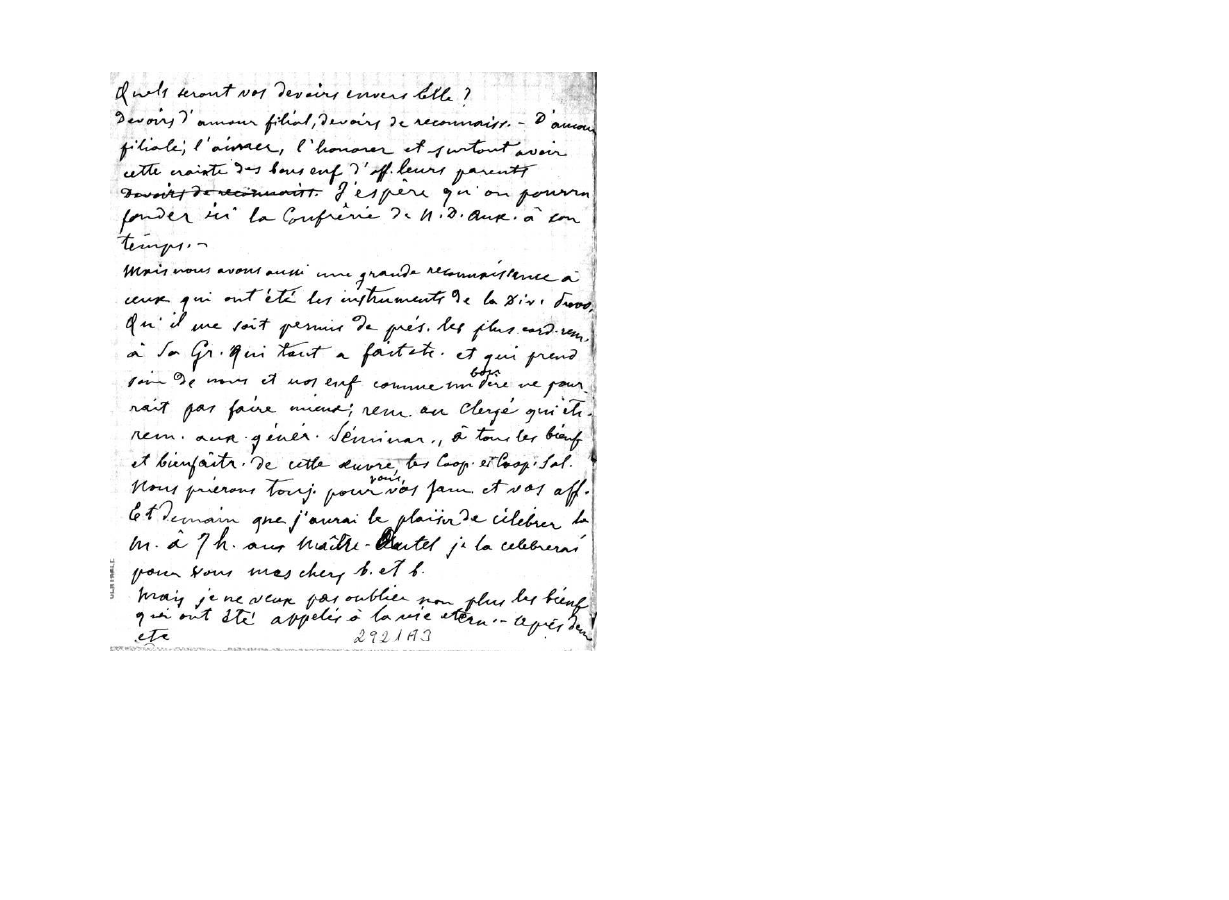 Quels seront vos devoirs envers Elle ?
Devoirs d'amour filial, devoirs de reconnaiss. - D'amour
filiale; l'aimer, l'honorer et surtout avoir
cette crainte des bons enf d'off. leurs parents
Devoirs de reconnaiss. J'espère qu'on pourra
fonder ici la Confrérie de N.D. Aux. à son
temps. -
Mais nous avons aussi une grande reconnaissance à
ceux qui ont été les instruments de la Div. Prov.
Qu'il me soit permis de prés. les plus cord. rem.
à Sa Gr. Qui tant a fait etc. et qui prend
soin de nous et nos enf comme un bon père ne pour-
rait pas faire mieux; rem. au Clergé qui etc.
rem. aux génér. Séminar., à tous les bienf
et bienfaitr. de cette œuvre, les Coop. et Coop. Sal.
Nous prierons touj. pour vous, vos fam. et vos aff.
Et demain que j'aurai le plaisir de célébrer la
m. à 7 h. au Maître-Autel je la celebrerai
pour vous mes chers b. et b.
Mais je ne veux pas oublier non plus les bienf
qui ont été appelés à la vie etern. - Après dem
etc
2921A3